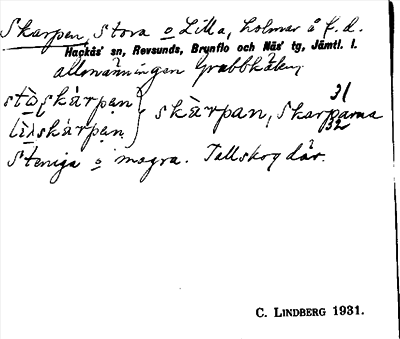 Skarpen, Stora o Lilla, holmar å f.d.
Hackås' sn, Revsunds, Brunflo och Näs' tg, Jämtl. l.
allmänningen Grabbkölen,
skàrpan, Skarparna
31
32
Steniga o magra. Tallskog där.
C. LINDBERG 1931.